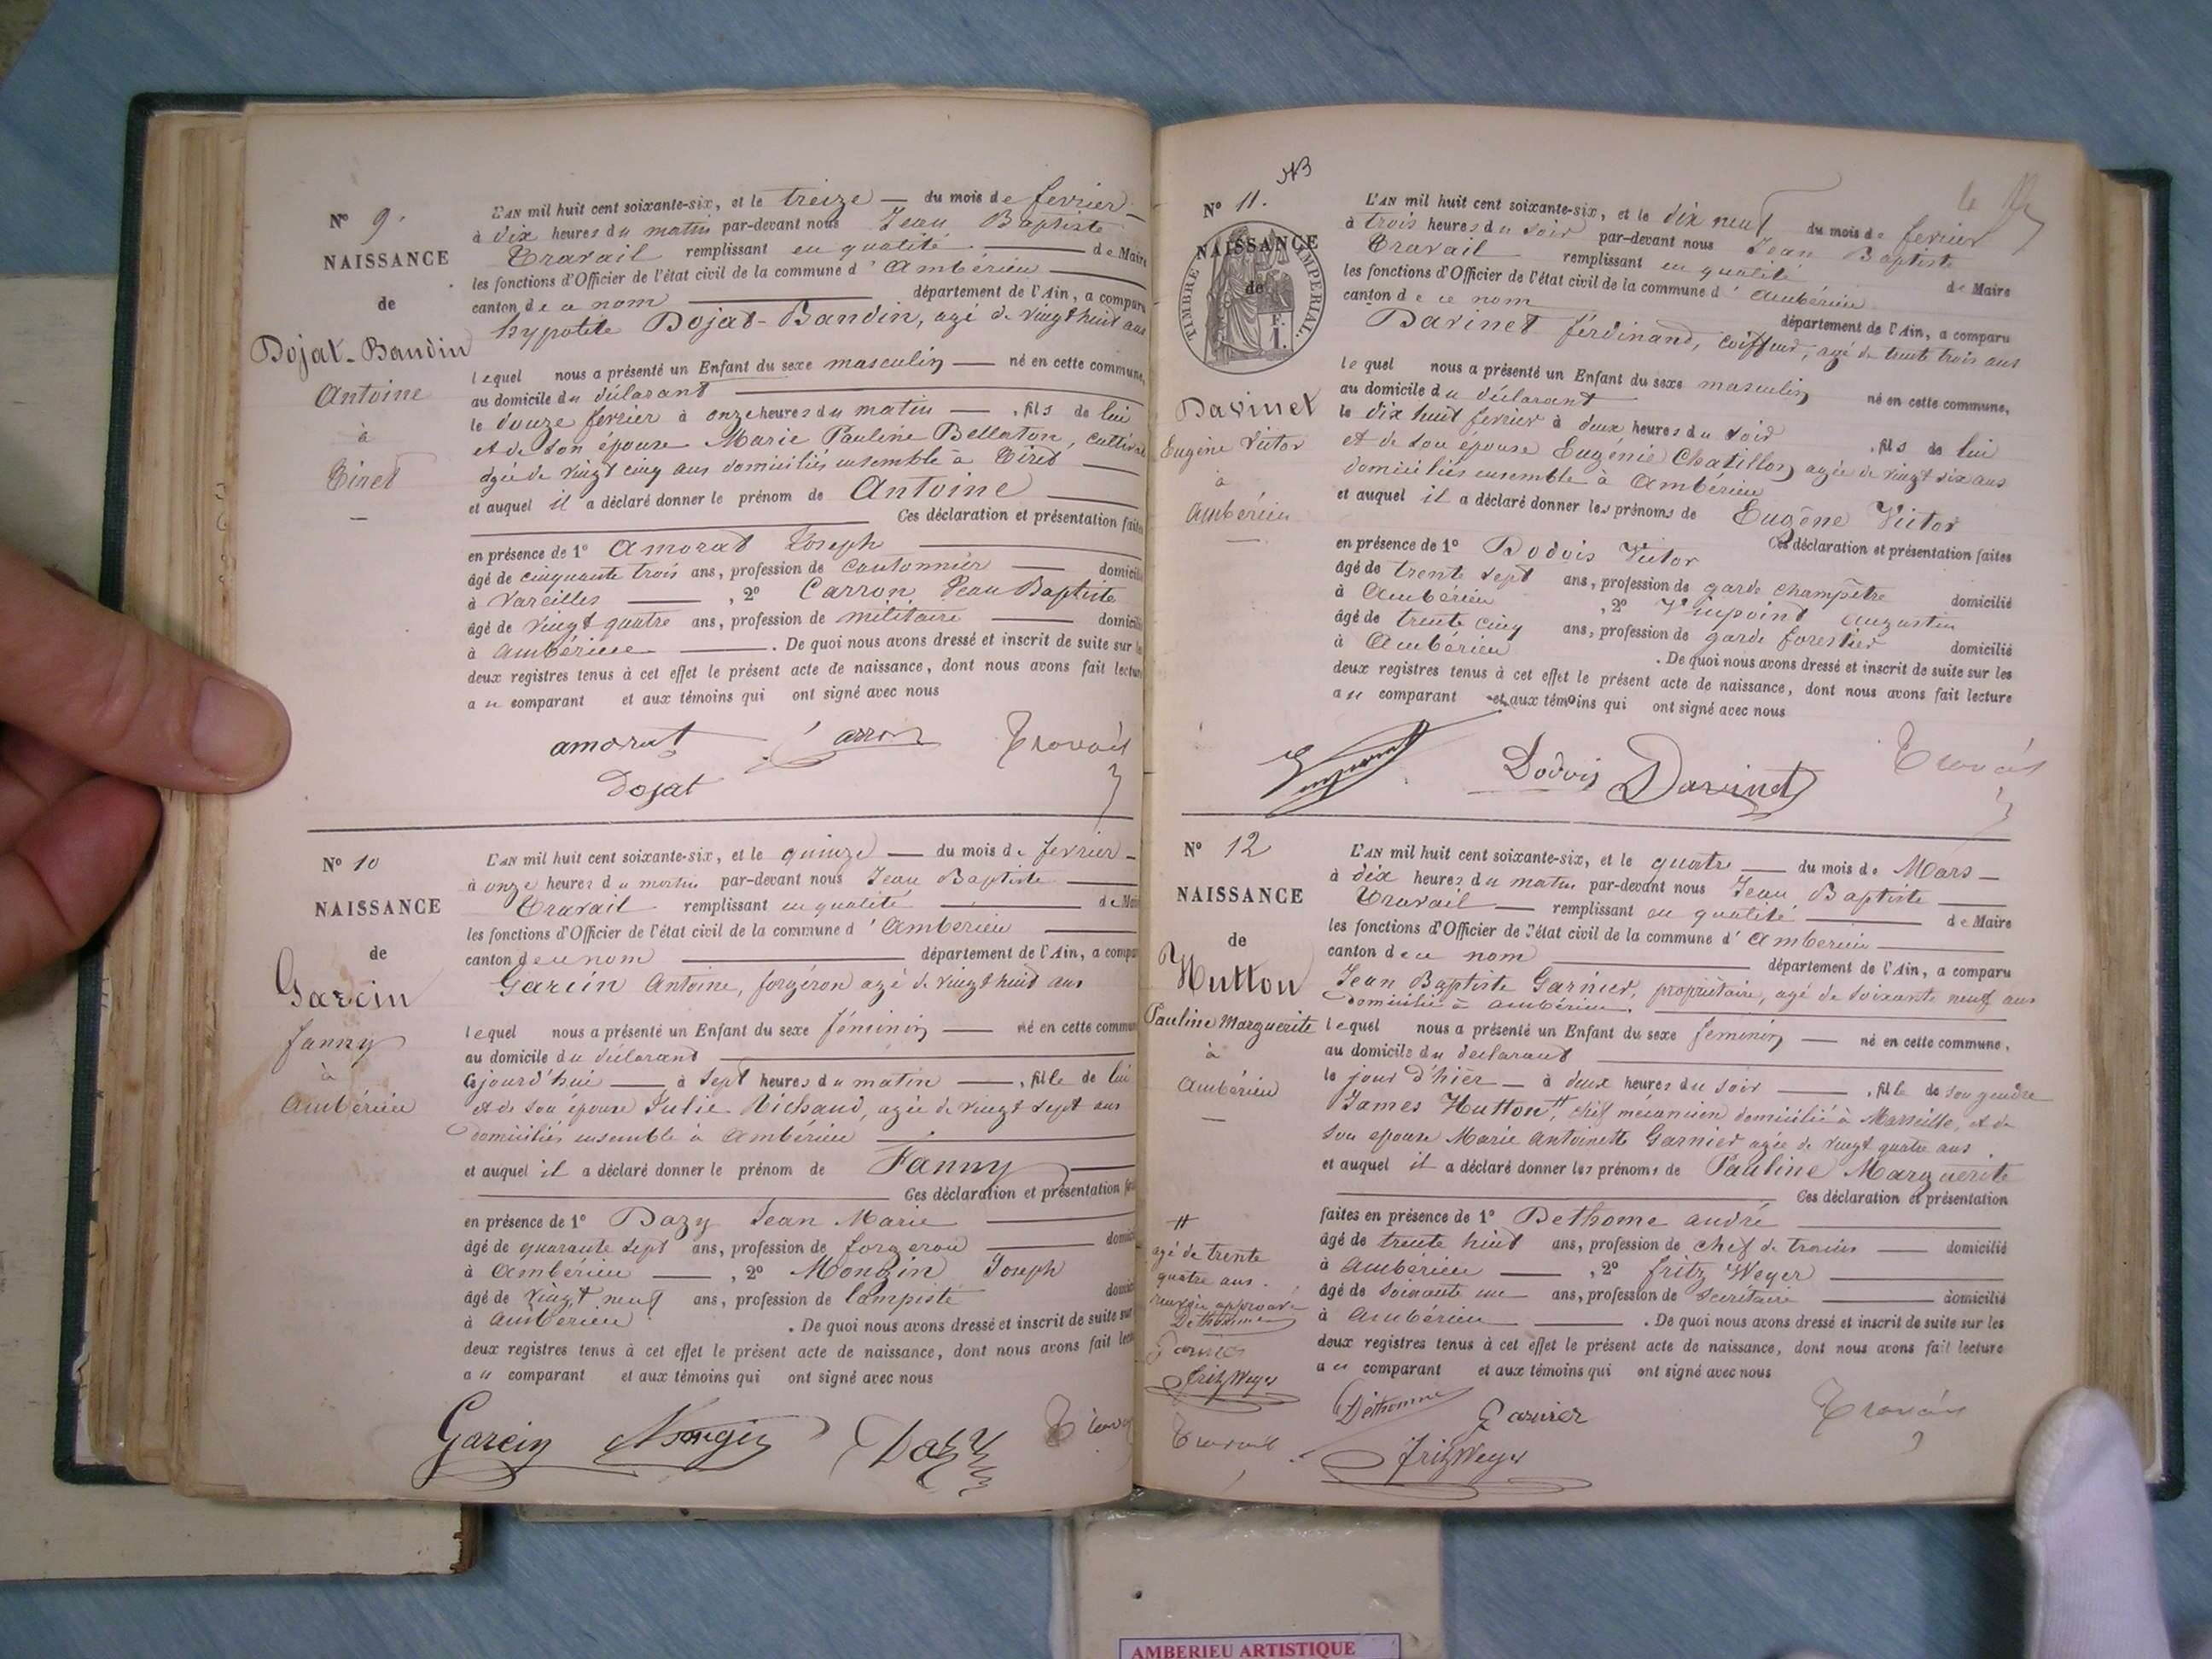 N° 9.
NAISSANCE
de
Dojat-Bandin
Antoine
à
Tiret
L'AN mil huit cent soixante-six, et le treize du mois de fevrier
à dix heures du matin par-devant nous Jean Baptiste
Travail remplissant en qualité de Maire
les fonctions d'Officier de l'état civil de la commune d'Ambérieu
canton de ce nom département de l'Ain, a comparu
hypolite Dojat-Bandin, agé de vingt huit ans
lequel nous a présenté un Enfant du sexe masculin né en cette commune,
au domicile du déclarant
le douze fevrier à onze heures du matin , fils de lui
et de son épouse Marie Pauline Bellaton,
agée de vingt cinq ans domiciliés ensemble à Tiret
et auquel il a déclaré donner le prénom de Antoine
Ces déclaration et présentation faites
en présence de 1° Amorat Joseph
âgé de cinquante trois ans, profession de cantonnier
à Vareilles , 2° Carron Jean Baptiste
âgé de vingt quatre ans, profession de militaire
à ambérieu . De quoi nous avons dressé et inscrit de suite sur
deux registres tenus à cet effet le présent acte de naissance, dont nous avons fait
au comparant et aux témoins qui ont signé avec nous
amorat Carron Travail
Dojat
N° 10
NAISSANCE
de
Garcin
fanny
à
Ambérieu
L'AN mil huit cent soixante-six, et le quinze du mois de fevrier
à onze heures du matin par-devant nous Jean Baptiste
Travail remplissant en qualité
les fonctions d'Officier de l'état civil de la commune d'Ambérieu
canton de ce nom département de l'Ain, a
Garcin Antoine, forgéron agé de vingt huit ans
lequel nous a présenté un Enfant du sexe féminin né en cette
au domicile du déclarant
cejourd'hui à sept heures du matin , fille de lui
et de son épouse Julie Richaud, agée de vingt sept ans
domiciliés ensemble à Ambérieu
et auquel il a déclaré donner le prénom de Fanny
Ces déclaration et présentation
en présence de 1° Dazy Jean Marie
âgé de quarante sept ans, profession de forgeron
à Ambérieu , 2° Mongin Joseph
âgé de vingt neuf ans, profession de lampiste
à Ambérieu . De quoi nous avons dressé et inscrit de suite sur
deux registres tenus à cet effet le présent acte de naissance, dont nous avons fait
au comparant et aux témoins qui ont signé avec nous
Garcin Mongin Dazy
N° 11.
NAISSANCE
de
TIMBRE IMPERIAL.
F.
1.
Davinet
Eugène Victor
à
Ambérieu
L'AN mil huit cent soixante-six, et le dix neuf du mois de fevrier
à trois heures du soir par-devant nous Jean Baptiste
Travail remplissant en qualité de Maire
les fonctions d'Officier de l'état civil de la commune d'Ambérieu
canton de ce nom département de l'Ain, a comparu
Davinet ferdinand, coiffeur, agé de trente trois ans
lequel nous a présenté un Enfant du sexe masculin né en cette commune,
au domicile du déclarant
le dix huit fevrier à deux heures du soir , fils de lui
et de son épouse Eugénie Chatillon agée de vingt six ans
domiciliés ensemble à Ambérieu
et auquel il a déclaré donner les prénoms de Eugène Victor
Ces déclaration et présentation faites
en présence de 1° Dodois Victor
âgé de trente sept ans, profession de garde champêtre domicilié
à Ambérieu , 2° Vuipoint Augustin
âgé de trente cinq ans, profession de garde forestier domicilié
à Ambérieu . De quoi nous avons dressé et inscrit de suite sur les
deux registres tenus à cet effet le présent acte de naissance, dont nous avons fait lecture
au comparant et aux témoins qui ont signé avec nous
Dodois Davinet Travail
N° 12
NAISSANCE
de
Hutton
Pauline Marguerite
à
Ambérieu
L'AN mil huit cent soixante-six, et le quatre du mois de Mars
à dix heures du matin par-devant nous Jean Baptiste
Travail remplissant en qualité de Maire
les fonctions d'Officier de l'état civil de la commune d'Amberieu
canton de ce nom département de l'Ain, a comparu
Jean Baptiste Garnier, propriétaire, agé de soixante neuf ans
domicilié à Ambérieu.
lequel nous a présenté un Enfant du sexe feminin né en cette commune,
au domicile du déclarant
le jour d'hier à deux heures du soir , fille de son gendre
James Hutton #, chef mécanicien domicilié à Marseille, et de
son epouse Marie Antoinette Garnier agée de vingt quatre ans.
et auquel il a déclaré donner les prénoms de Pauline Marguerite
Ces déclaration et présentation
faites en présence de 1° Dethome andré
âgé de trente huit ans, profession de chef de trains domicilié
à Amberieu , 2° fritz Weyer
âgé de soixante un ans, profession de secrétaire domicilié
à Ambérieu . De quoi nous avons dressé et inscrit de suite sur les
deux registres tenus à cet effet le présent acte de naissance, dont nous avons fait lecture
au comparant et aux témoins qui ont signé avec nous
#
agé de trente
quatre ans.
renvoi approuvé
Dethomme
Garnier
Fritz Weyer
Travail
Dethomme Garnier Travail
Fritz Weyer
AMBERIEU ARTISTIQUE